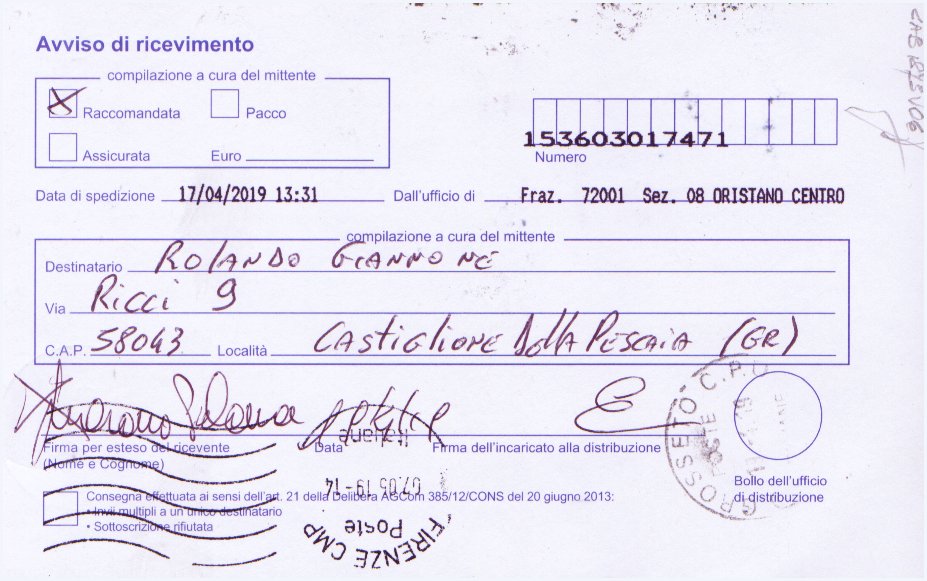 Avviso di ricevimento
compilazione a cura del mittente
Raccomandata Pacco
Assicurata Euro
153603017471
Numero
Data di spedizione 17/04/2019 13:31 Dall'ufficio di Fraz. 72001 Sez. 08 ORISTANO CENTRO
compilazione a cura del mittente
Destinatario ROLANDO GIANNONE
Via RICCI 9
C.A.P. 58043 Località CASTIGLIONE DELLA PESCAIA (GR)
Firma per esteso del ricevente Data Firma dell'incaricato alla distribuzione
(Nome e Cognome)
Bollo dell'ufficio
di distribuzione
Consegna effettuata ai sensi dell'art. 21 della Delibera AGCom 385/12/CONS del 20 giugno 2013:
• Invii multipli a un unico destinatario
• Sottoscrizione rifiutata
GROSSETO C.P.O
Poste
italiane
07.05 19-14
FIRENZE CMP